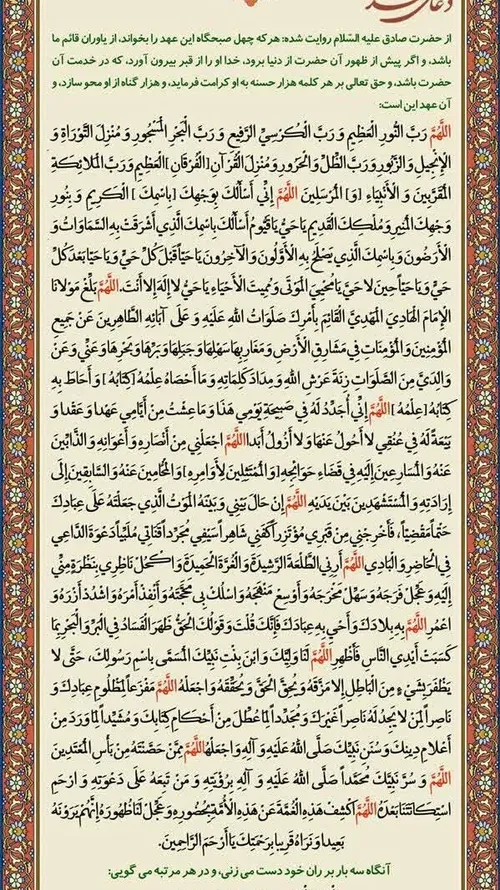 دعای عهد
از حضرت صادق علیه السّلام روایت شده: هر که چهل صبحگاه این عهد را بخواند، از یاوران قائم ما
باشد، و اگر پیش از ظهور آن حضرت از دنیا برود، خدا او را از قبر بیرون آورد، که در خدمت آن
حضرت باشد، و حق تعالی بر هر کلمه هزار حسنه به او کرامت فرماید، و هزار گناه از او محو سازد، و
آن عهد این است:
اللّهُمَّ رَبَّ النُّورِ الْعَظِيمِ وَ رَبَّ الْكُرْسِيِّ الرَّفِيعِ وَ رَبَّ الْبَحْرِ الْمَسْجُورِ وَ مُنْزِلَ التَّوْرَاةِ وَ
الْإِنْجِيلِ وَ الزَّبُورِ وَ رَبَّ الظِّلِّ وَ الْحَرُورِ وَ مُنْزِلَ الْقُرْآنِ [الْفُرْقَانِ] الْعَظِيمِ وَ رَبَّ الْمَلائِكَةِ
الْمُقَرَّبِينَ وَ الْأَنْبِيَاءِ [وَ] الْمُرْسَلِينَ اللّهُمَّ إِنِّي أَسْأَلُكَ بِوَجْهِكَ [بِاسْمِكَ] الْكَرِيمِ وَ بِنُورِ
وَجْهِكَ الْمُنِيرِ وَ مُلْكِكَ الْقَدِيمِ يَا حَيُّ يَا قَيُّومُ أَسْأَلُكَ بِاسْمِكَ الَّذِي أَشْرَقَتْ بِهِ السَّمَاوَاتُ وَ
الْأَرَضُونَ وَ بِاسْمِكَ الَّذِي يَصْلَحُ بِهِ الْأَوَّلُونَ وَ الْآخِرُونَ يَا حَيّاً قَبْلَ كُلِّ حَيٍّ وَ يَا حَيّاً بَعْدَ كُلِّ
حَيٍّ وَ يَا حَيّاً حِينَ لا حَيَّ يَا مُحْيِيَ الْمَوْتَى وَ مُمِيتَ الْأَحْيَاءِ يَا حَيُّ لا إِلَهَ إِلا أَنْتَ. اللّهُمَّ بَلِّغْ مَوْلانَا
الْإِمَامَ الْهَادِيَ الْمَهْدِيَّ الْقَائِمَ بِأَمْرِكَ صَلَوَاتُ اللهِ عَلَيْهِ وَ عَلَى آبَائِهِ الطَّاهِرِينَ عَنْ جَمِيعِ
الْمُؤْمِنِينَ وَ الْمُؤْمِنَاتِ فِي مَشَارِقِ الْأَرْضِ وَ مَغَارِبِهَا سَهْلِهَا وَ جَبَلِهَا وَ بَرِّهَا وَ بَحْرِهَا وَ عَنِّي وَ عَنْ
وَالِدَيَّ مِنَ الصَّلَوَاتِ زِنَةَ عَرْشِ اللهِ وَ مِدَادَ كَلِمَاتِهِ وَ مَا أَحْصَاهُ عِلْمُهُ [كِتَابُهُ] وَ أَحَاطَ بِهِ
كِتَابُهُ [عِلْمُهُ] اللّهُمَّ إِنِّي أُجَدِّدُ لَهُ فِي صَبِيحَةِ يَوْمِي هَذَا وَ مَا عِشْتُ مِنْ أَيَّامِي عَهْدا وَ عَقْدا وَ
بَيْعَةً لَهُ فِي عُنُقِي لا أَحُولُ عَنْهَا وَ لا أَزُولُ أَبَدا اللّهُمَّ اجْعَلْنِي مِنْ أَنْصَارِهِ وَ أَعْوَانِهِ وَ الذَّابِّينَ
عَنْهُ وَ الْمُسَارِعِينَ إِلَيْهِ فِي قَضَاءِ حَوَائِجِهِ [وَ الْمُمْتَثِلِينَ لِأَوَامِرِهِ] وَ الْمُحَامِينَ عَنْهُ وَ السَّابِقِينَ إِلَى
إِرَادَتِهِ وَ الْمُسْتَشْهَدِينَ بَيْنَ يَدَيْهِ اللّهُمَّ إِنْ حَالَ بَيْنِي وَ بَيْنَهُ الْمَوْتُ الَّذِي جَعَلْتَهُ عَلَى عِبَادِكَ
حَتْماً مَقْضِيّاً، فَأَخْرِجْنِي مِنْ قَبْرِي مُؤْتَزِراً كَفَنِي شَاهِراً سَيْفِي مُجَرِّداً قَنَاتِي مُلَبِّياً دَعْوَةَ الدَّاعِي
فِي الْحَاضِرِ وَ الْبَادِي اللّهُمَّ أَرِنِي الطَّلْعَةَ الرَّشِيدَةَ وَ الْغُرَّةَ الْحَمِيدَةَ وَ اكْحُلْ نَاظِرِي بِنَظْرَةٍ مِنِّي
إِلَيْهِ وَ عَجِّلْ فَرَجَهُ وَ سَهِّلْ مَخْرَجَهُ وَ أَوْسِعْ مَنْهَجَهُ وَ اسْلُكْ بِي مَحَجَّتَهُ وَ أَنْفِذْ أَمْرَهُ وَ اشْدُدْ أَزْرَهُ وَ
اعْمُرِ اللّهُمَّ بِهِ بِلادَكَ وَ أَحْيِ بِهِ عِبَادَكَ فَإِنَّكَ قُلْتَ وَ قَوْلُكَ الْحَقُّ ظَهَرَ الْفَسَادُ فِي الْبَرِّ وَ الْبَحْرِ بِمَا
كَسَبَتْ أَيْدِي النَّاسِ فَأَظْهِرِ اللّهُمَّ لَنَا وَلِيَّكَ وَ ابْنَ بِنْتِ نَبِيِّكَ الْمُسَمَّى بِاسْمِ رَسُولِكَ، حَتَّى لا
يَظْفَرَ بِشَيْءٍ مِنَ الْبَاطِلِ إِلا مَزَّقَهُ وَ يُحِقَّ الْحَقَّ وَ يُحَقِّقَهُ وَ اجْعَلْهُ اللّهُمَّ مَفْزَعاً لِمَظْلُومِ عِبَادِكَ وَ
نَاصِراً لِمَنْ لا يَجِدُ لَهُ نَاصِراً غَيْرَكَ وَ مُجَدِّداً لِمَا عُطِّلَ مِنْ أَحْكَامِ كِتَابِكَ وَ مُشَيِّداً لِمَا وَرَدَ مِنْ
أَعْلامِ دِينِكَ وَ سُنَنِ نَبِيِّكَ صَلَّى اللهُ عَلَيْهِ وَ آلِهِ وَ اجْعَلْهُ اللّهُمَّ مِمَّنْ حَصَّنْتَهُ مِنْ بَأْسِ الْمُعْتَدِينَ
اللّهُمَّ وَ سُرَّ نَبِيَّكَ مُحَمَّداً صَلَّى اللهُ عَلَيْهِ وَ آلِهِ بِرُؤْيَتِهِ وَ مَنْ تَبِعَهُ عَلَى دَعْوَتِهِ وَ ارْحَمِ
اسْتِكَانَتَنَا بَعْدَهُ اللّهُمَّ اكْشِفْ هَذِهِ الْغُمَّةَ عَنْ هَذِهِ الْأُمَّةِ بِحُضُورِهِ وَ عَجِّلْ لَنَا ظُهُورَهُ إِنَّهُمْ يَرَوْنَهُ
بَعِيدا وَ نَرَاهُ قَرِيبا بِرَحْمَتِكَ يَا أَرْحَمَ الرَّاحِمِينَ.
آنگاه سه بار بر ران خود دست می زنی، و در هر مرتبه می گویی: